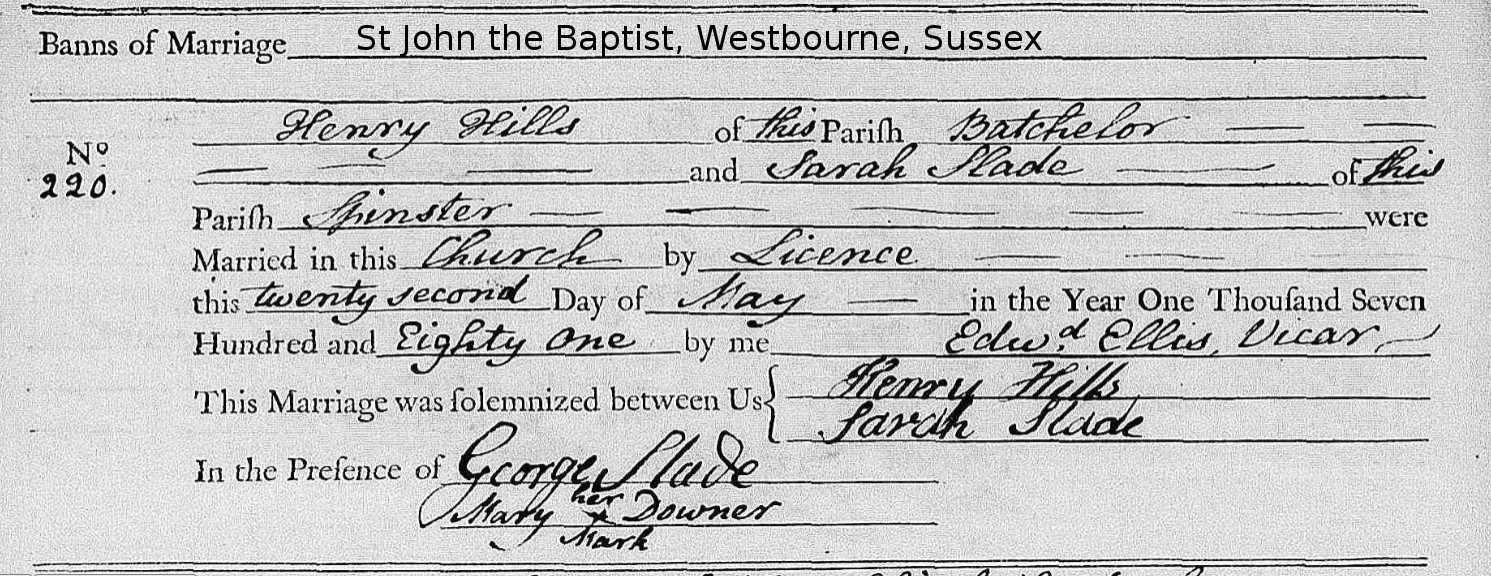 Banns of Marriage St John the Baptist, Westbourne, Sussex
Henry Hills of this Pariſh Batchelor
Nº
220.
and Sarah Slade of this
Pariſh Spinster were
Married in this Church by Licence
this twenty second Day of May in the Year One Thouſand Seven
Hundred and Eighty One by me Edwd. Ellis, Vicar
This Marriage was ſolemnized between Us { Henry Hills
Sarah Slade
In the Preſence of George Slade
her
Mary x Downer
Mark